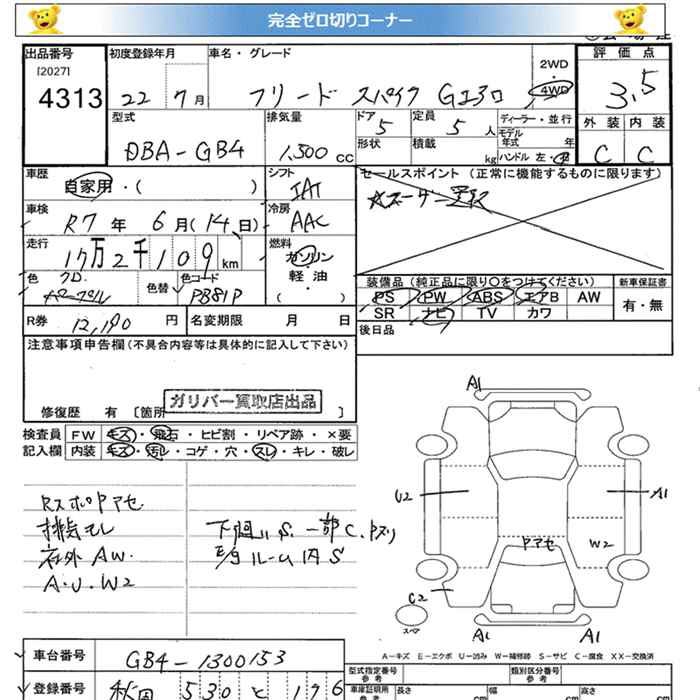 完全ゼロ切りコーナー
出品番号 初度登録年月 車名・グレード 2WD 評価点
[2027]
4313 22 7月 フリード スパイク Gエアロ 4WD 3.5
型式 排気量 ドア 定員 ディーラー・並行 外装 内装
DBA-GB4 1,500cc 5 5人 モデル年式 年
形状 積載 kg ハンドル 左・右 C C
車歴 自家用・( ) シフト IAT セールスポイント (正常に機能するものに限ります)
車検 R7年 6月(14日) 冷房 AAC
走行 17万2千109km 燃料 ガソリン
軽油
( ・ )
色 色替 色コード PB81P
装備品 (純正品に限り○をつけてください) 新車保証書
PS PW ABS エアB AW 有・無
SR ナビ TV カワ
R券 12,190円 名変期限 月 日 後日品
注意事項申告欄 (不具合内容等は具体的に記入して下さい)
ガリバー買取店出品
修復歴 有 [箇所 ]
検査員 FW キズ・飛石・ヒビ割・リペア跡・×要
記入欄 内装 キズ・汚レ・コゲ・穴・スレ・キレ・破レ
A1
U2 A1
Pアセ W2
C2
スペア
A1 A1
排気モレ 下回リS. 一部C.
右外AW. ルーム内S
A.U.W2
A-キズ E-エクボ U-凹み W-補修跡 S-サビ C-腐食 XX-交換済
車台番号 GB4-1300153 型式指定番号 参考 類別区分番号 参考
登録番号 秋田 530 と 196 車庫証明用 参考 長さ cm 幅 cm 高さ cm